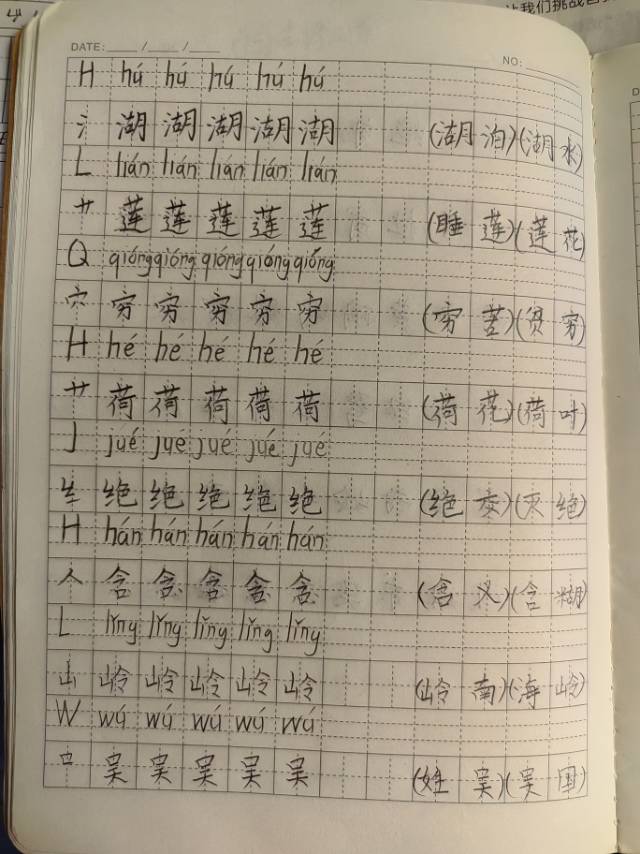 让我们挑战
DATE: ____ / ____ / ____
NO: ____
H hú hú hú hú hú
氵 湖 湖 湖 湖 湖 (湖 泊)(湖 水)
L lián lián lián lián lián
艹 莲 莲 莲 莲 莲 (睡 莲)(莲 花)
Q qióng qióng qióng qióng qióng
穴 穷 穷 穷 穷 穷 (穷 苦)(贫 穷)
H hé hé hé hé hé
艹 荷 荷 荷 荷 荷 (荷 花)(荷 叶)
J jué jué jué jué jué
纟 绝 绝 绝 绝 绝 (绝 交)(灭 绝)
H hán hán hán hán hán
人 含 含 含 含 含 (含 义)(含 糊)
L lǐng lǐng lǐng lǐng lǐng
山 岭 岭 岭 岭 岭 (岭 南)(海 岭)
W wú wú wú wú wú
口 吴 吴 吴 吴 吴 (姓 吴)(吴 国)